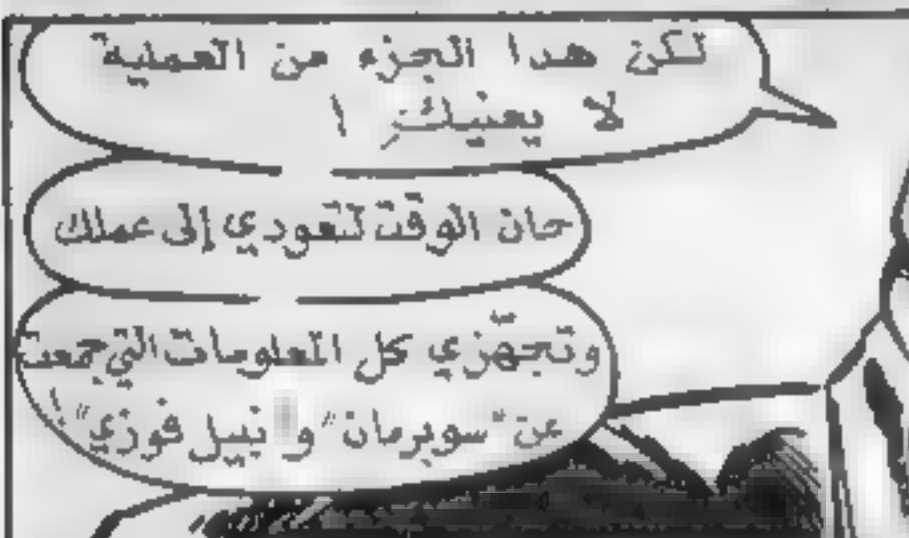 لكن هدا الجزء من العملية
لا يعنيكِ !
حان الوقت لتعودي إلى عملك
وتجهّزي كل المعلومات التي جمعت
عن "سوبرمان" و نبيل فوزي"!